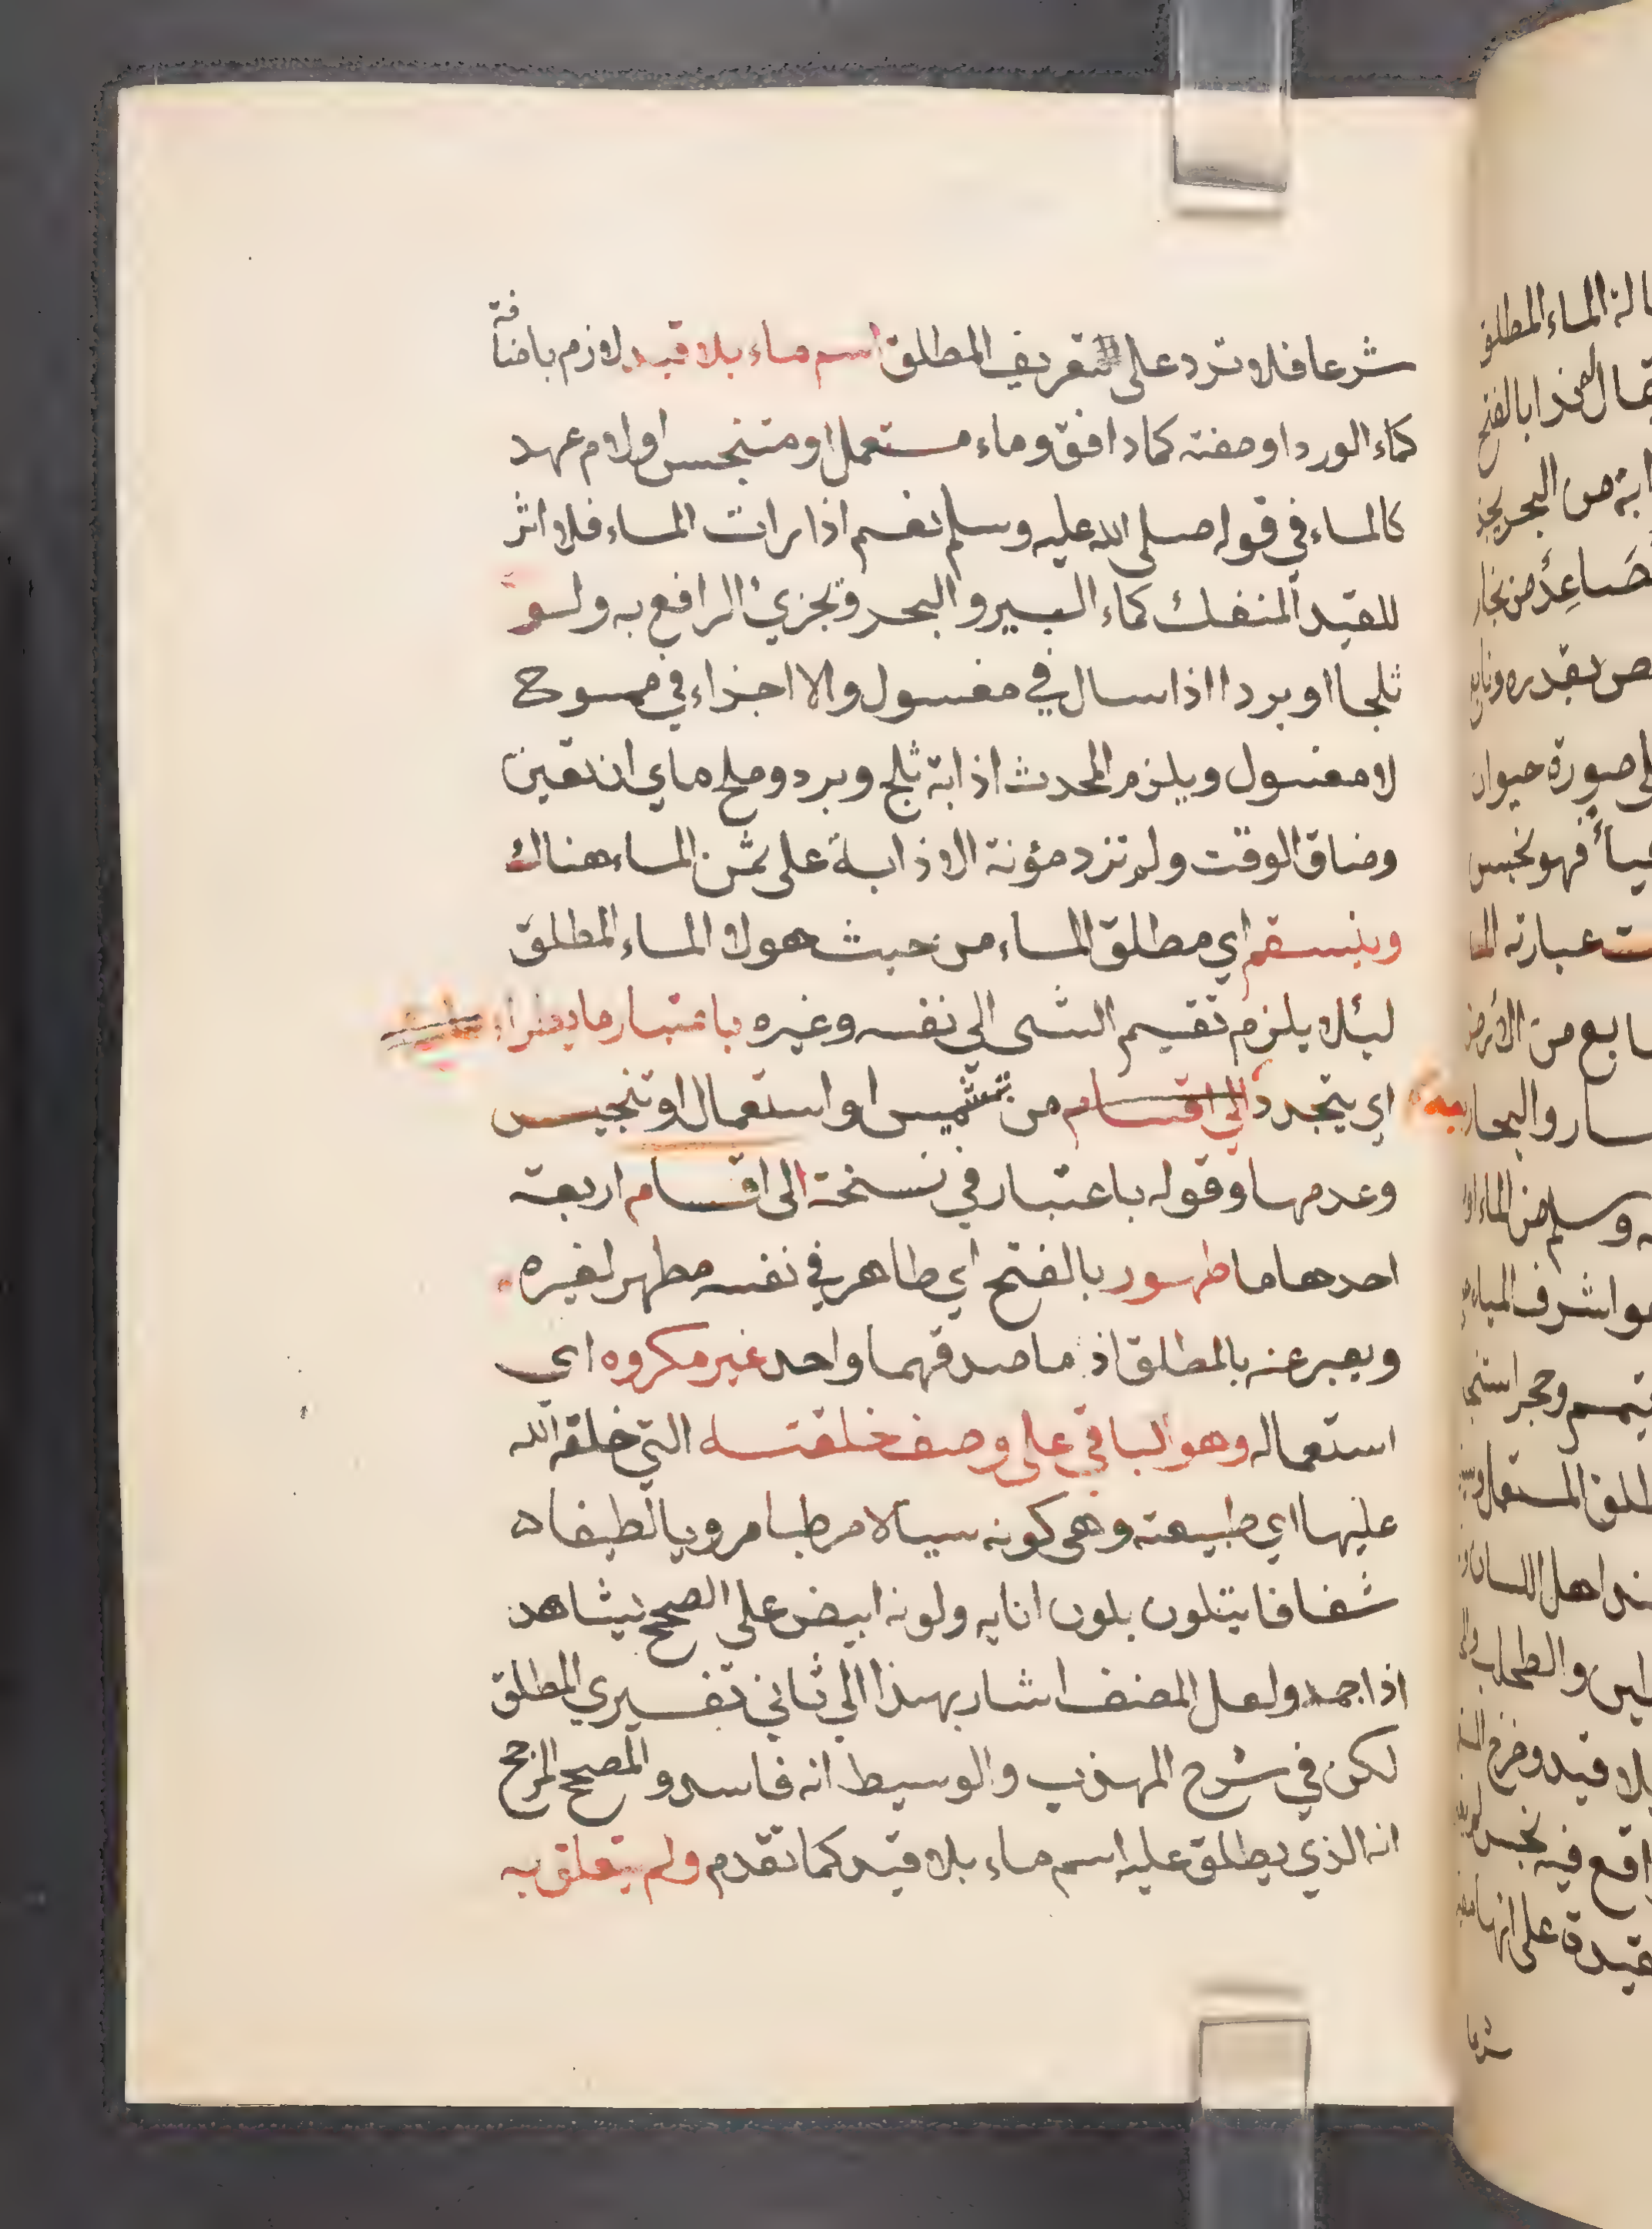 شرعا فلا ترد على تعريف المطلق اسم ماء بلا قيد لازم باضافة
كماء الورد او صفته كما دافق وماء مستعمل او متنجس او لام عهد
كالماء في قوله صلى الله عليه وسلم نعم اذا رات الماء فلا اثر
للقيد المنفك كماء البير والبحر ويجزي الرافع به ولو
ثلجا او بردا اذا سال في مغسول والا اجزاء في ممسوح
لا مغسول ويلزم المحدث اذابة ثلج وبرد وملح ماي ان تعين
وضاق الوقت ولم تزد مؤنة الاذابة على ثمن الماء هناك
وينسقم اي مطلق الماء من حيث هو لا الماء المطلق
ليلا يلزم تقسيم الشي الي نفسه وغيره باعتبار ما يطرا
اي يتجدد الي اقسام من تشميس او استعمال او تنجيس
وعدمها وقوله باعتبار في نسخة الى اقسام اربعة
احدها ما طهور بالفتح اي طاهر في نفسه مطهر لغيره
ويعبر عنه بالمطلق اذ ما صدقهما واحد غير مكروه اي
استعماله وهو الباقي على وصف خلقته التي خلقه الله
عليها اي طبيعته وهي كونه سيالا مرطبا مرويا لطيفا
شفافا يتلون بلون انايه ولونه ابيض على الصحيح يشاهد
اذا جمد ولعل المصنف اشار بهذا الي ثاني تفسيري المطلق
لكن في شرح المهذب والوسيط انه فاسد والمصحح المرجح
انه الذي يطلق عليه اسم ماء بلا قيد كما تقدم ولم يتعلق به